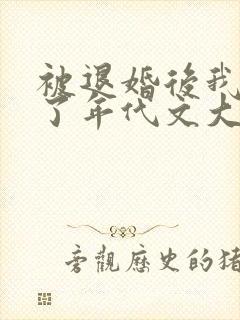 被退婚後我
了年代文大
旁觀歷史的猪